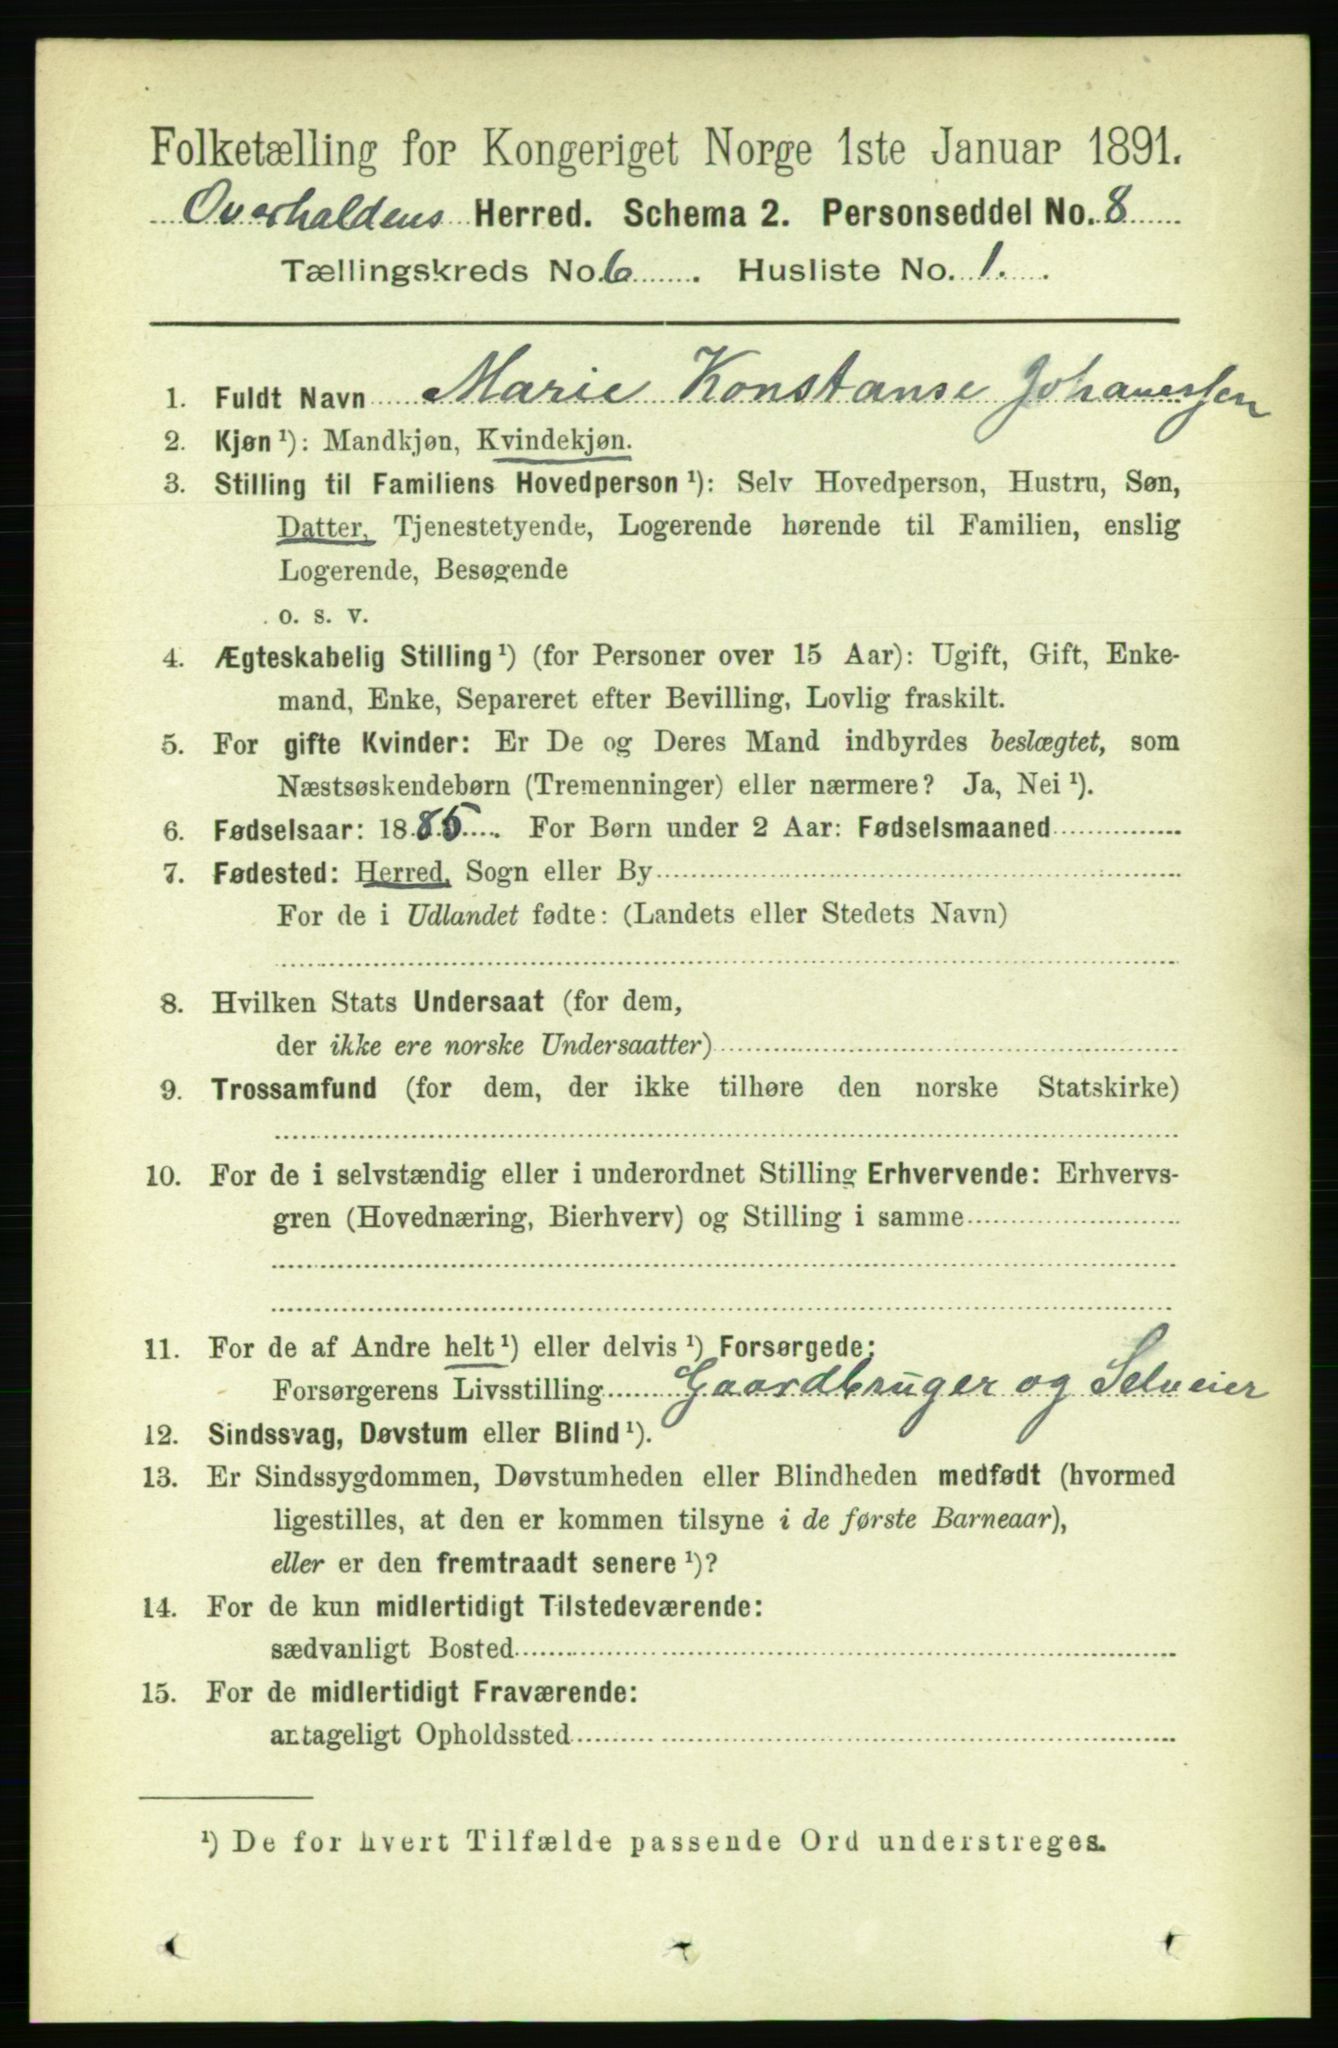 Folketælling for Kongeriget Norge 1ste Januar 1891.
Overhaldens Herred. Schema 2. Personseddel No. 8
Tællingskreds No. 6 . Husliste No. 1. .
1. Fuldt Navn Marie Konstanse Johanessen
2. Kjøn ¹): Mandkjøn, Kvindekjøn.
3. Stilling til Familiens Hovedperson ¹): Selv Hovedperson, Hustru, Søn,
Datter, Tjenestetyende, Logerende hørende til Familien, enslig
Logerende, Besøgende
o. s. v.
4. Ægteskabelig Stilling ¹) (for Personer over 15 Aar): Ugift, Gift, Enke-
mand, Enke, Separeret efter Bevilling, Lovlig fraskilt.
5. For gifte Kvinder: Er De og Deres Mand indbyrdes beslægtet, som
Næstsøskendebørn (Tremenninger) eller nærmere? Ja, Nei ¹).
6. Fødselsaar: 1885. For Børn under 2 Aar: Fødselsmaaned
7. Fødested: Herred, Sogn eller By
For de i Udlandet fødte: (Landets eller Stedets Navn)
8. Hvilken Stats Undersaat (for dem,
der ikke ere norske Undersaatter)
9. Trossamfund (for dem, der ikke tilhøre den norske Statskirke)
10. For de i selvstændig eller i underordnet Stilling Erhvervende: Erhvervs-
gren (Hovednæring, Bierhverv) og Stilling i samme
11. For de af Andre helt ¹) eller delvis ¹) Forsørgede:
Forsørgerens Livsstilling Gaardbruger og Selveier
12. Sindssvag, Døvstum eller Blind ¹).
13. Er Sindssygdommen, Døvstumheden eller Blindheden medfødt (hvormed
ligestilles, at den er kommen tilsyne i de første Barneaar),
eller er den fremtraadt senere ¹)?
14. For de kun midlertidigt Tilstedeværende:
sædvanligt Bosted
15. For de midlertidigt Fraværende:
antageligt Opholdssted
¹) De for hvert Tilfælde passende Ord understreges.